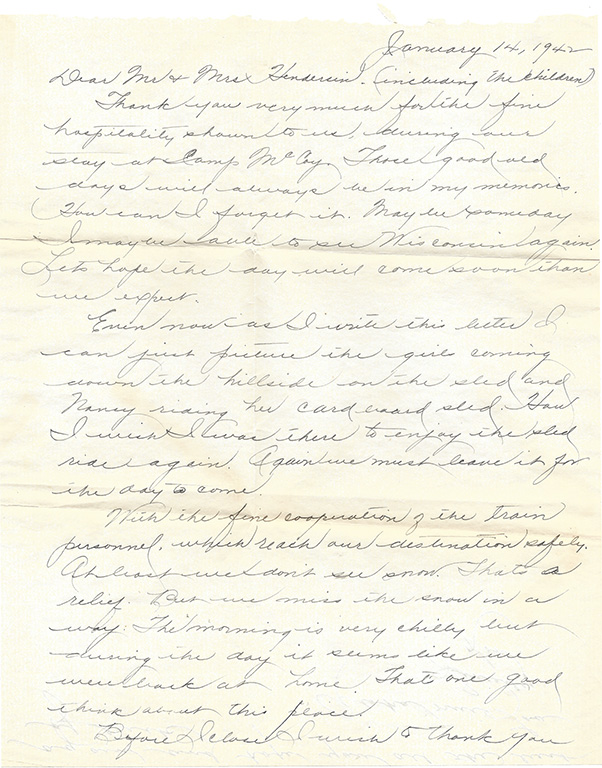 January 14, 1942
Dear Mr & Mrs Hendersin. (including the children)
Thank you very much for the fine
hospitality shown to us, during our
stay at Camp McCoy. Those good old
days will always be in my memories.
How can I forget it. Maybe someday
I maybe able to see Wisconsin again.
Lets hope the day will come soon than
we expect.
Even now as I write this letter I
can just picture the girls coming
down the hillside on the sled and
Nancy riding her card board sled. How
I wish I was there to enjoy the sled
ride again. Again we must leave it for
the day to come.
With the fine cooperation of the train
personnel, which reach our destination safely.
At least we don't see snow. Thats a
relief. But we miss the snow in a
way. The morning is very chilly but
during the day it seems like we
were back at home. That's one good
think about this place.
Before I close I wish to thank you